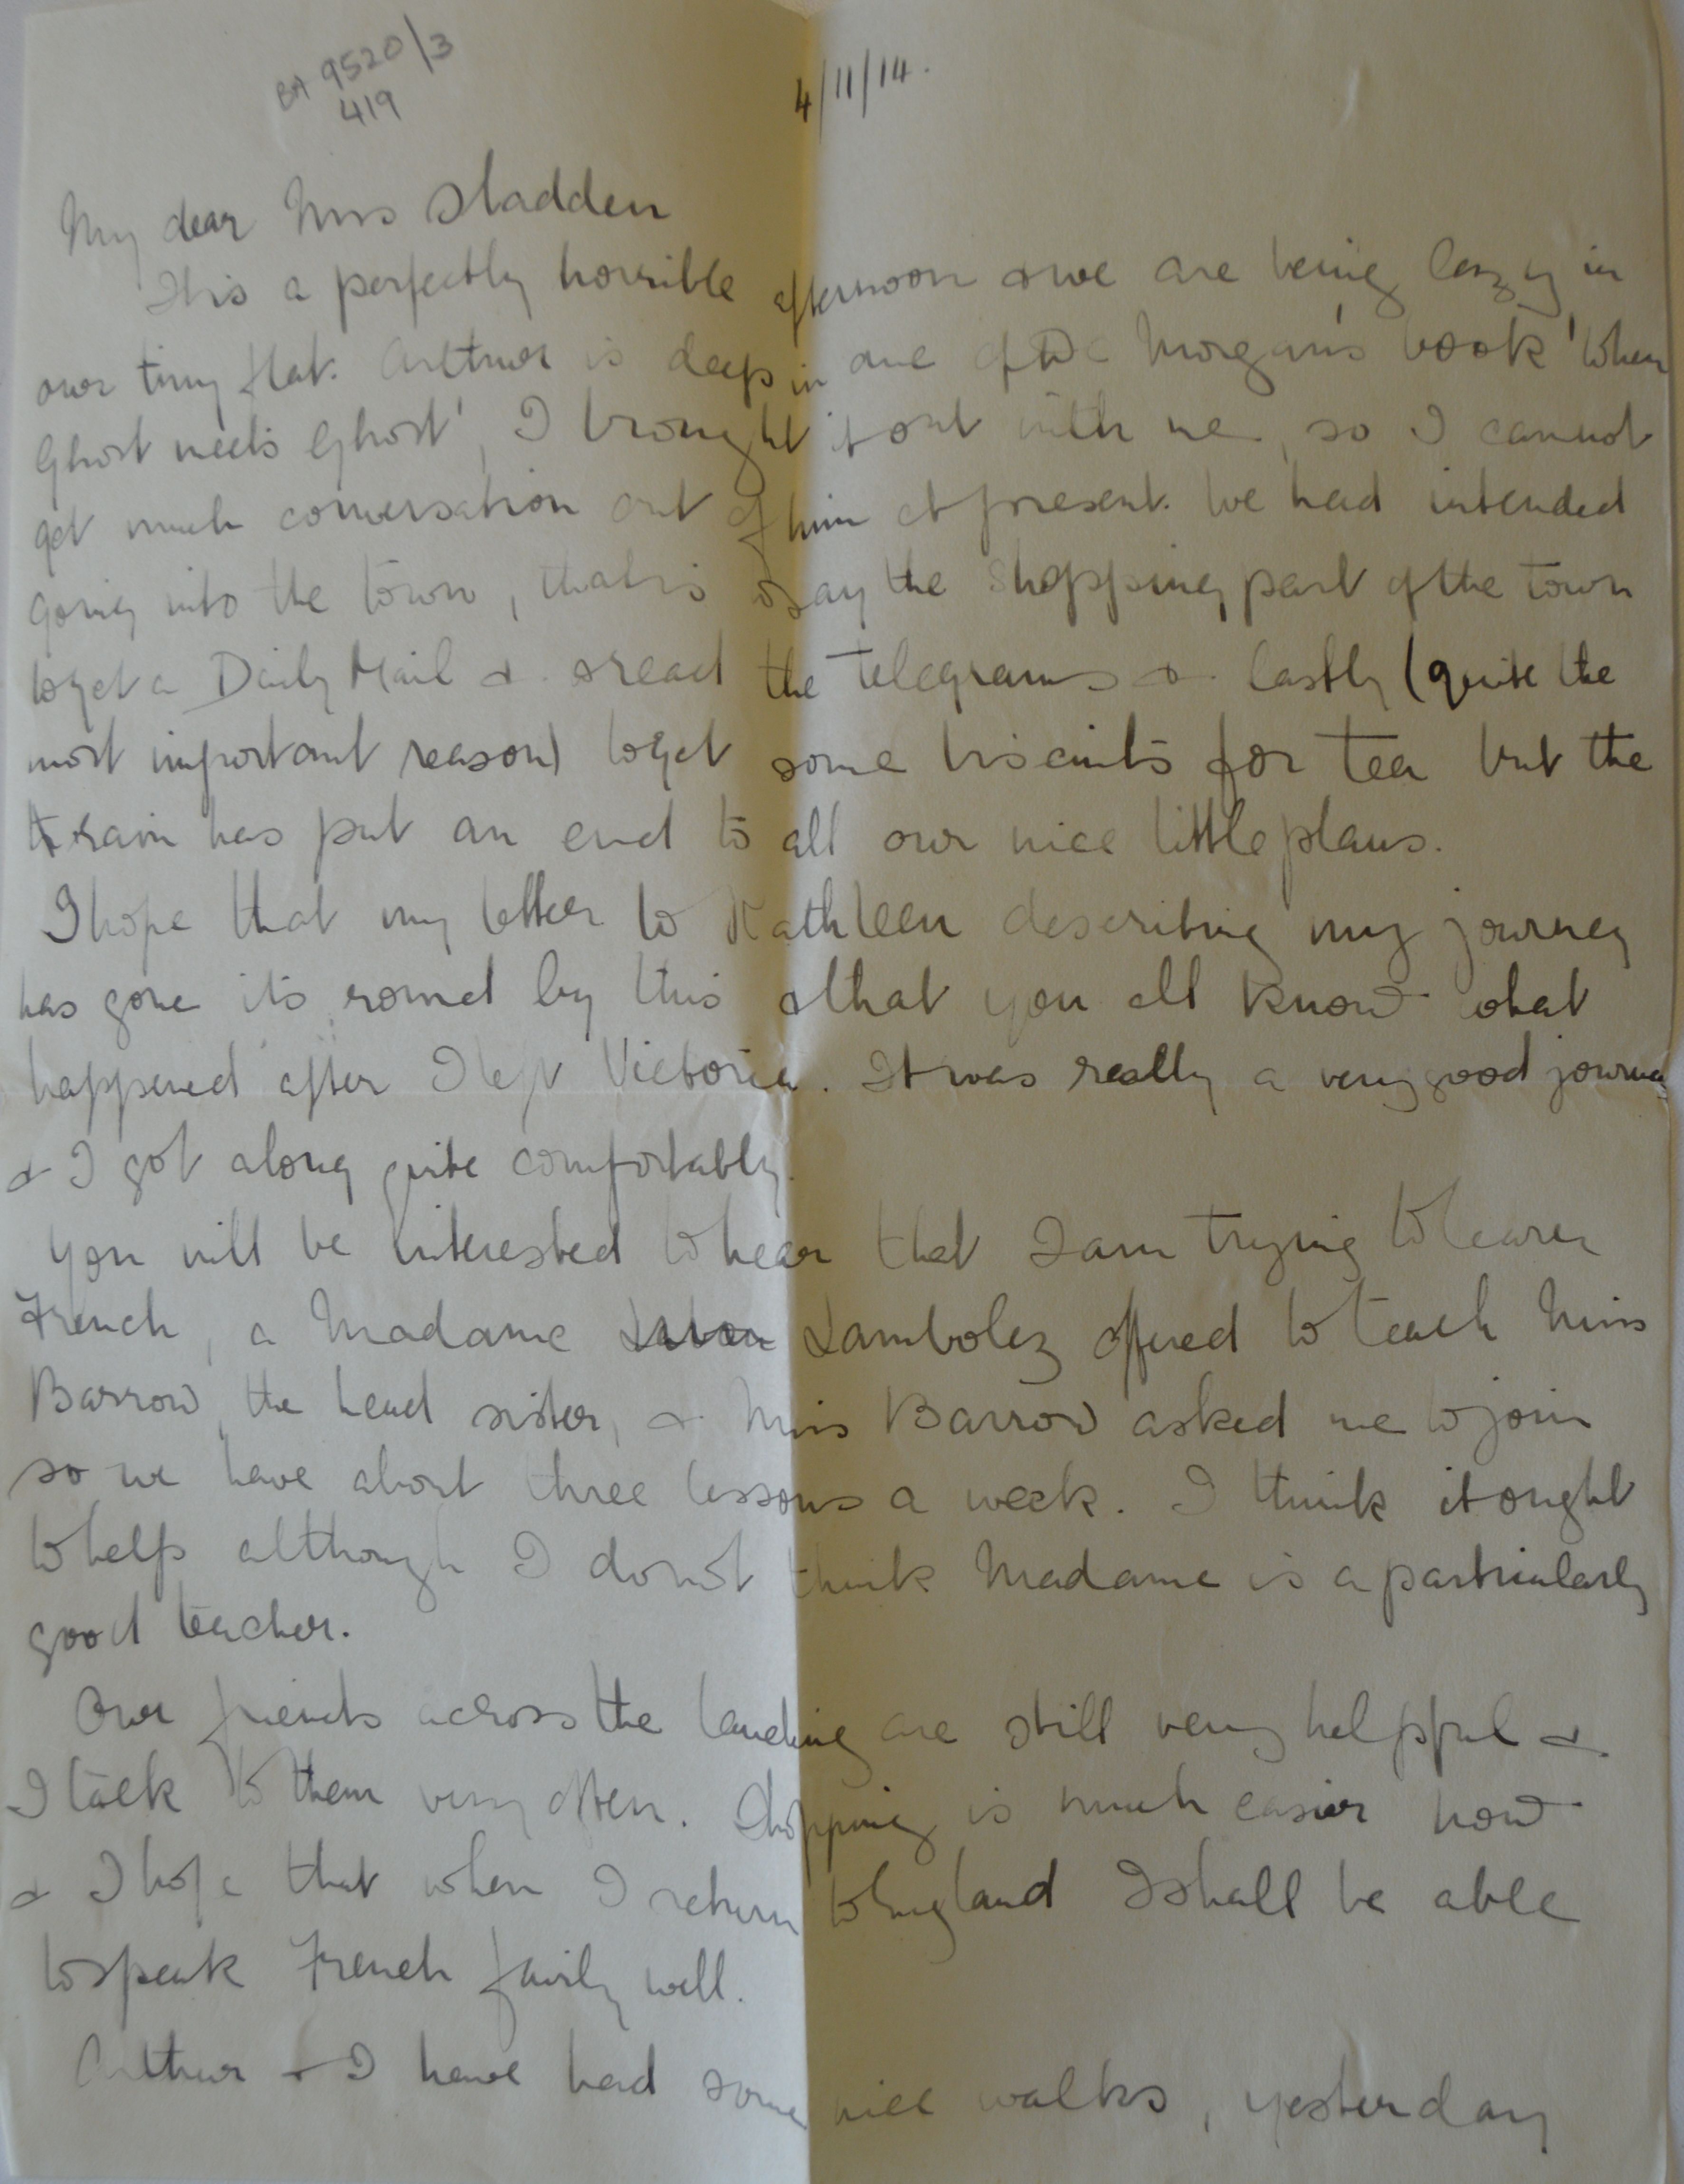 BA 9520/3
419
4/11/14.
My dear Mrs Sladden
It is a perfectly horrible afternoon & we are being lazy in
our tiny flat. Arthur is deep in one of De Morgan's book 'When
Ghost meets Ghost', I brought it out with me, so I cannot
get much conversation out of him at present. We had intended
going into the town, that is to say the shopping part of the town
to get a Daily Mail & read the telegrams & lastly (quite the
most important reason) to get some biscuits for tea but the
rain has put an end to all our nice little plans.
I hope that my letter to Kathleen describing my journey
has gone its round by this & that you all know what
happened after I left Victoria. It was really a very good journey
& I got along quite comfortably.
You will be interested to hear that I am trying to learn
French, a Madame Lambolez offered to teach Miss
Barrow, the head sister, & Miss Barrow asked me to join
so we have about three lessons a week. I think it ought
to help although I do not think Madame is a particularly
good teacher.
Our friends across the landing are still very helpful &
I talk to them very often. Shopping is much easier now
& I hope that when I return to England I shall be able
to speak French fairly well.
Arthur & I have had some nice walks, yesterday